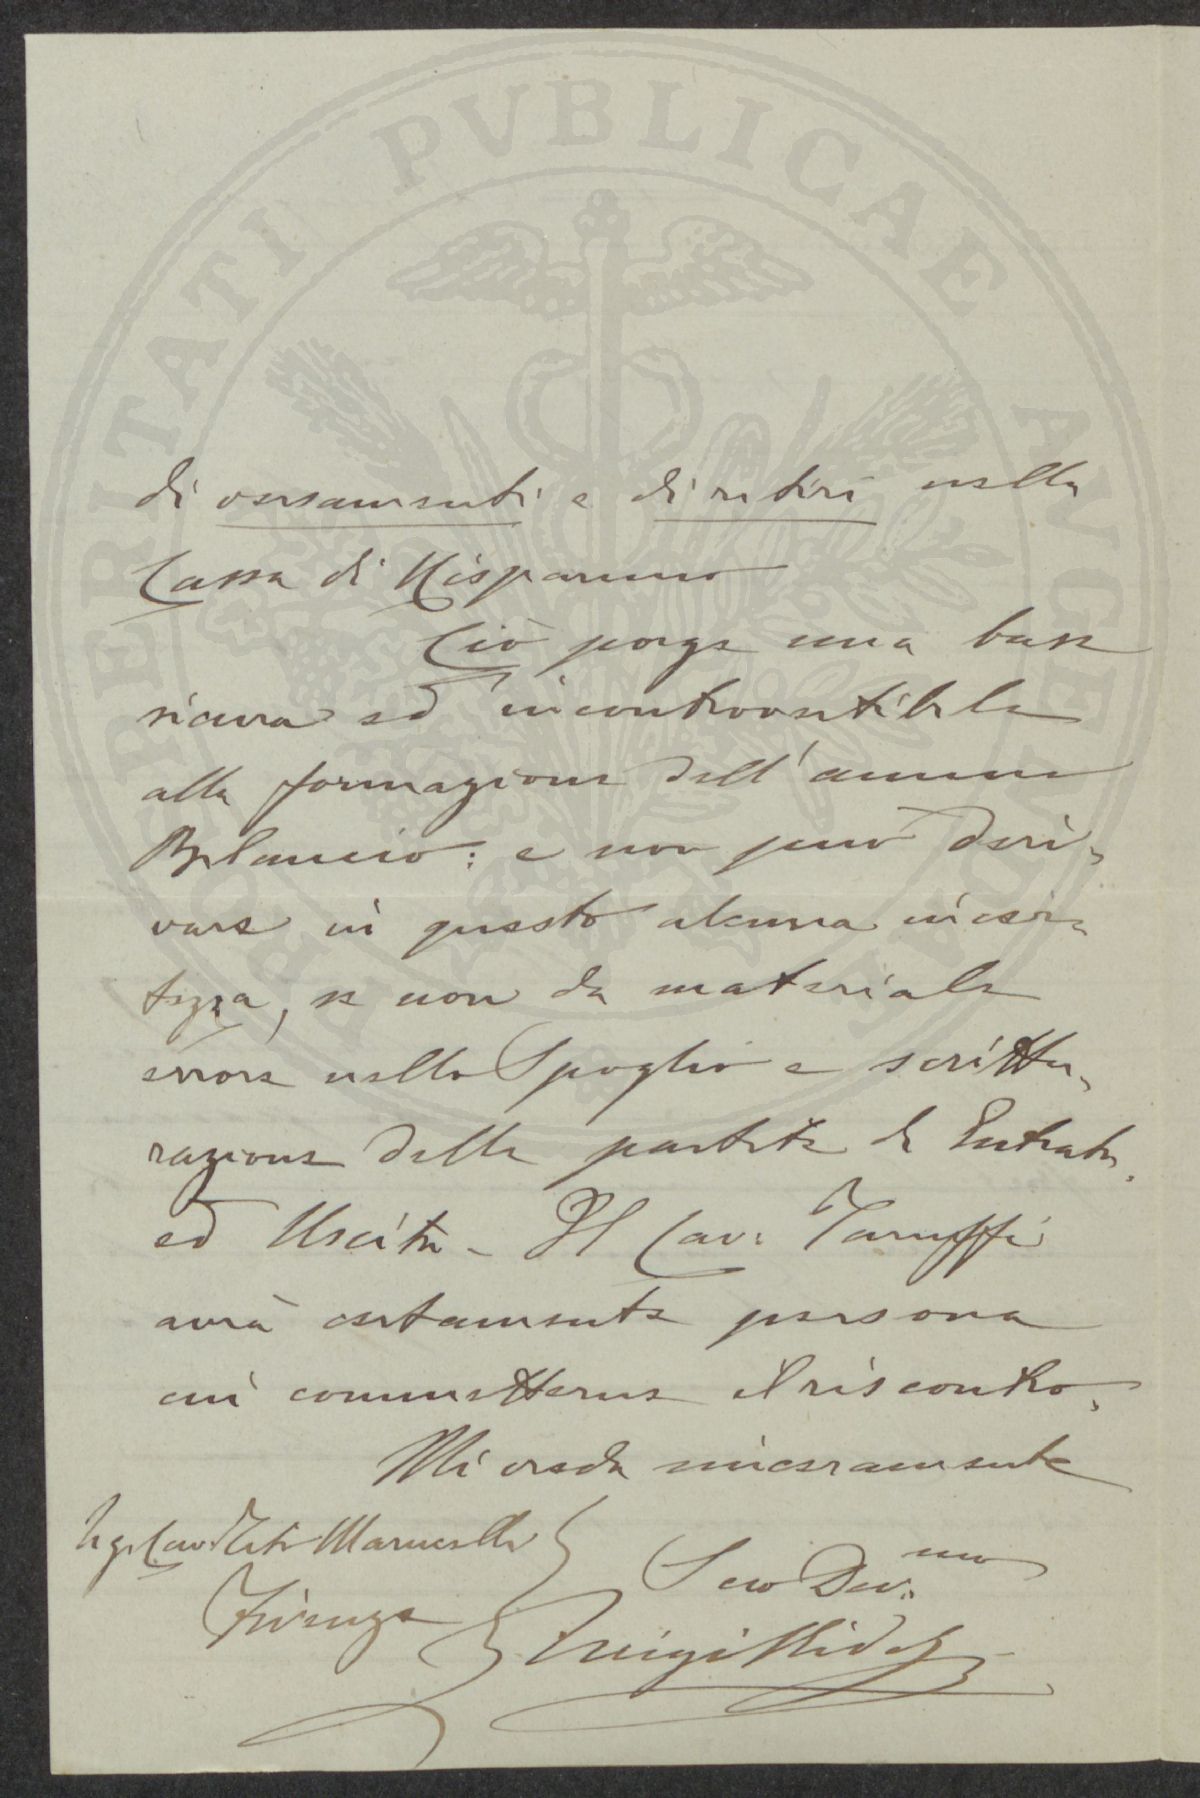 PROSPERITATI PVBLICAE AVGENDAE
di versamenti e di ritiri nella
Cassa di Risparmio
Ciò porge una base
sicura ed incontrovertibile
alla formazione dell'annuo
Bilancio: e non può deri-
vare in questo alcuna incer-
tezza, se non da materiale
errore nello Spoglio e scrittu-
razione delle partite di Entrata,
ed Uscita - Il Cav: Taruffi
avrà certamente persona
cui commetterne il riscontro.
Mi creda sinceramente
Cav Marucelli
Suo Dev:mo
Firenze
Luigi Ridolfi